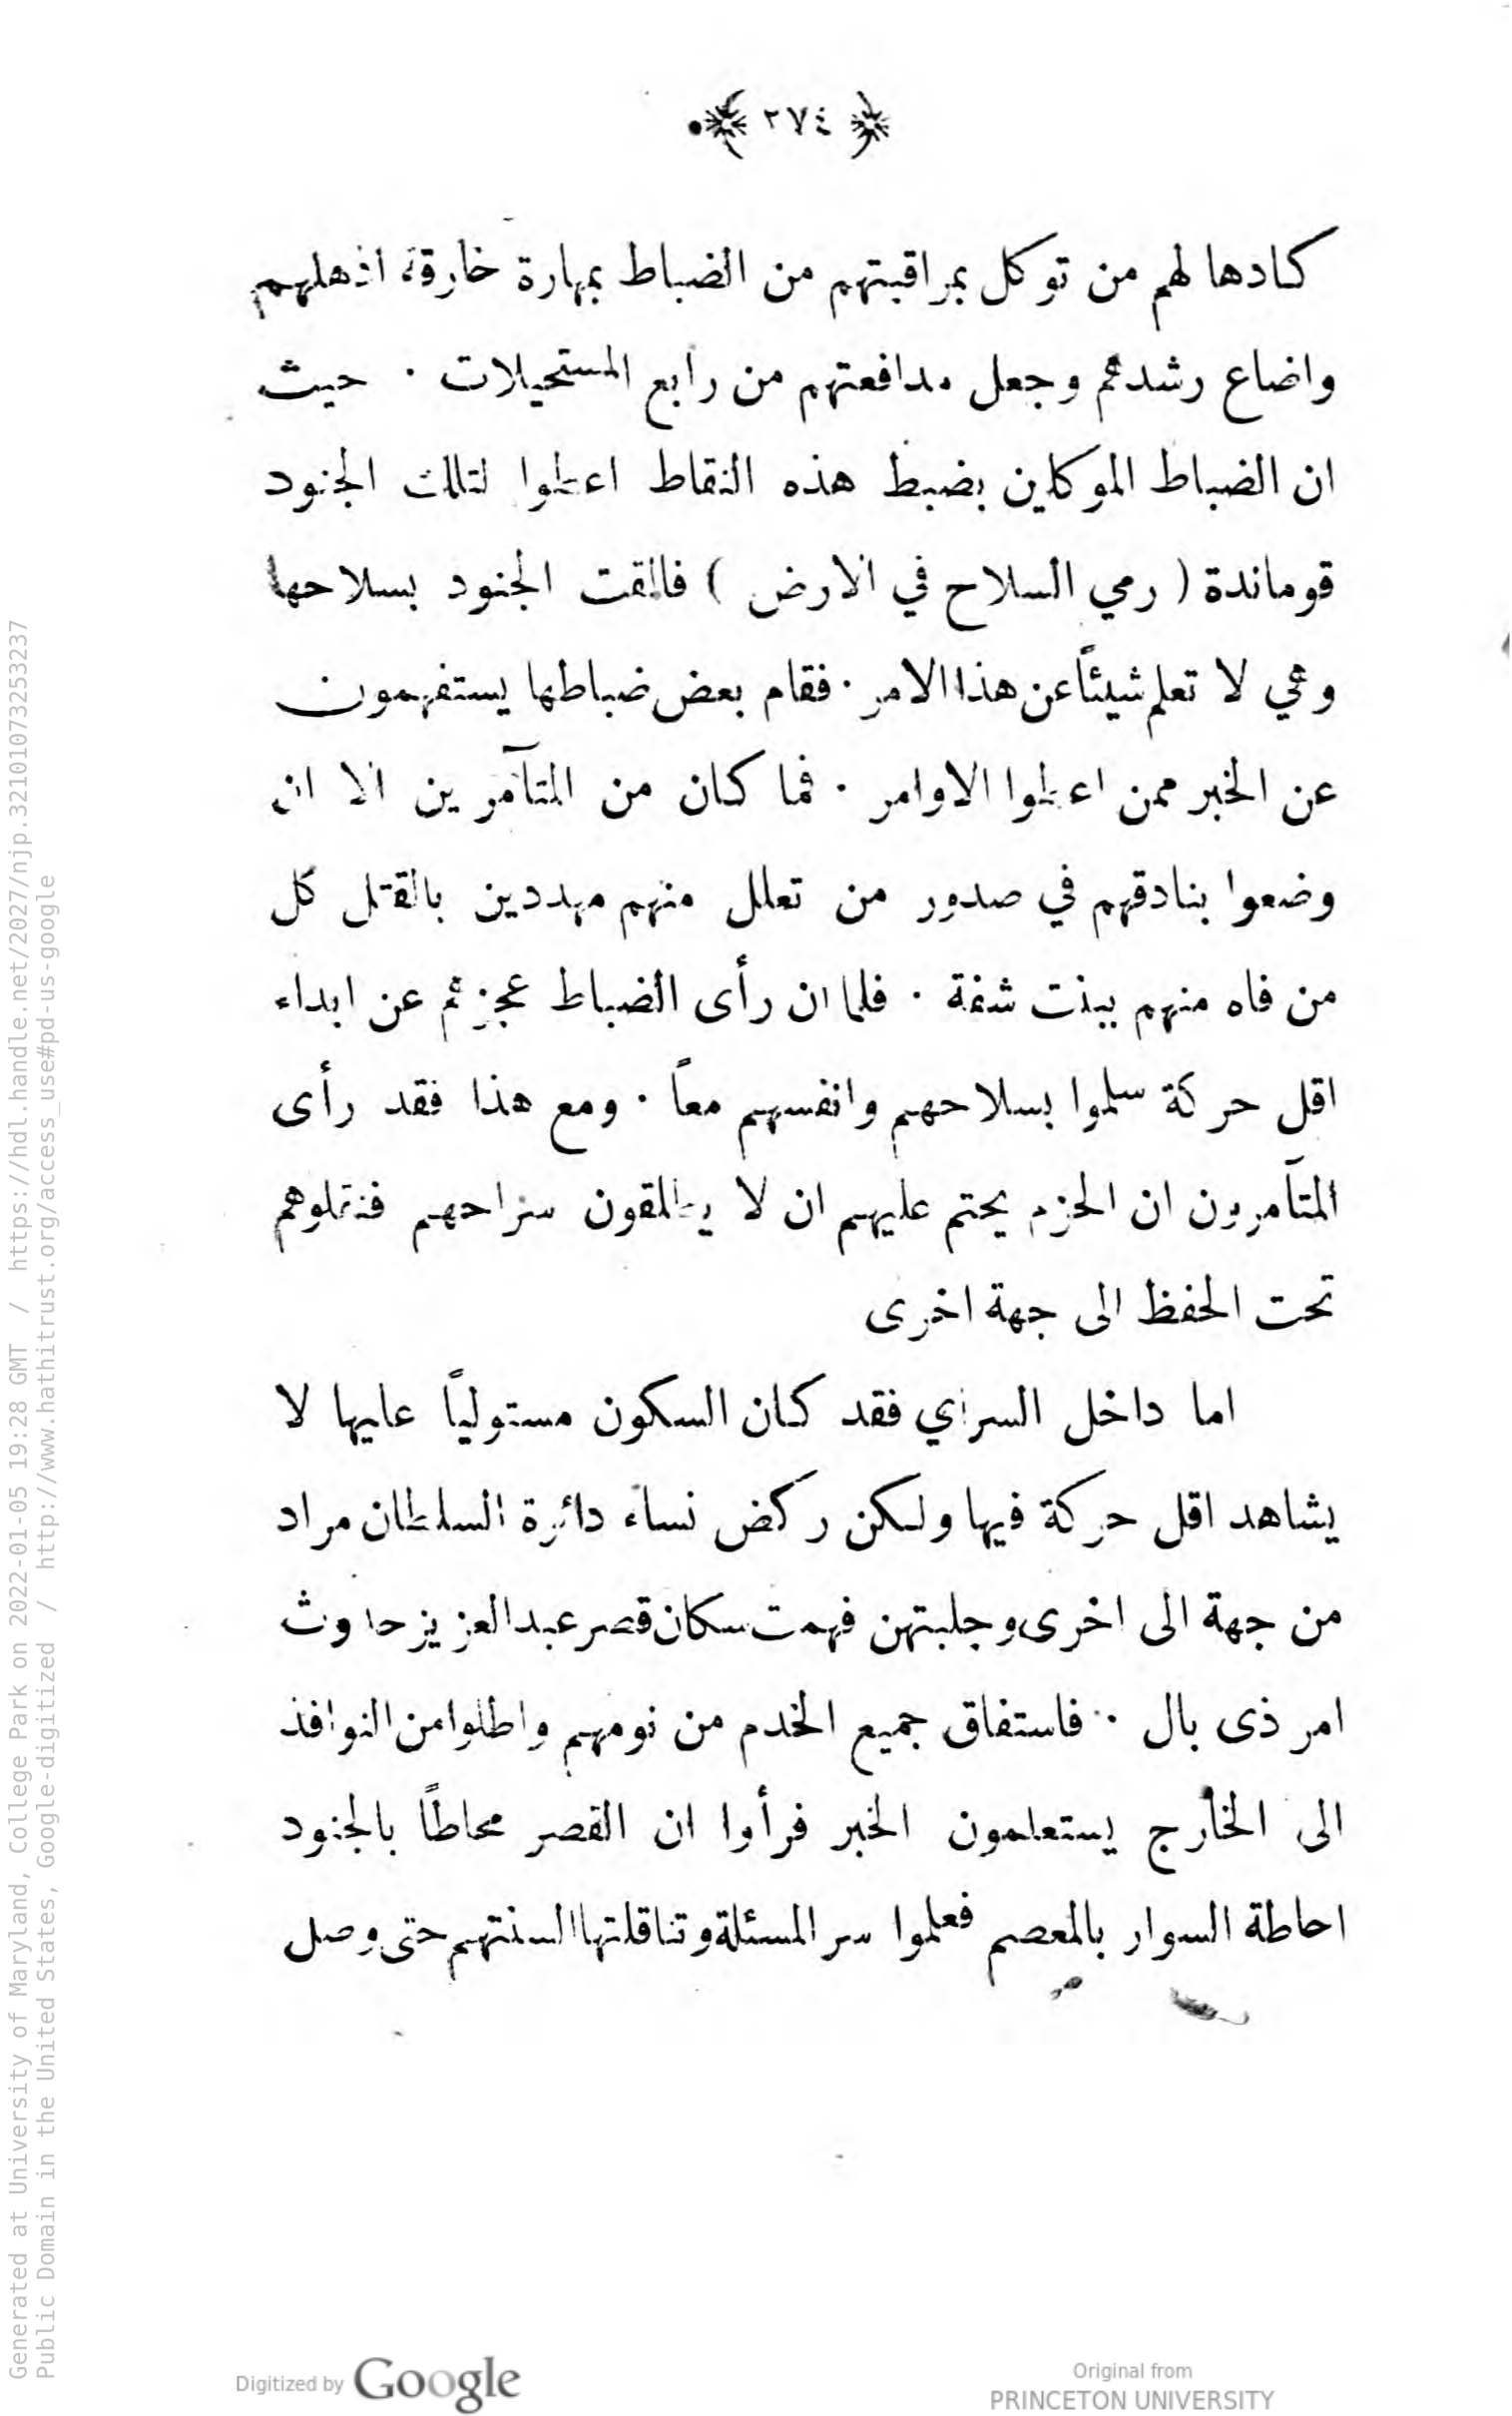 ٢٧٤
كادها لهم من توكل بمراقبتهم من الضباط بمهارة خارقة اذهلهم
واضاع رشدهم وجعل مدافعتهم من رابع المستحيلات ٠ حيث
ان الضباط الموكلين بضبط هذه النقاط اعطوا لتلك الجنود
قوماندة ( رمي السلاح في الارض ) فالقت الجنود بسلاحها
وهي لا تعلم شيئاً عن هذا الامر ٠ فقام بعض ضباطها يستفهمون
عن الخبر ممن اعطوا الاوامر ٠ فما كان من المتآمرين الا ان
وضعوا بنادقهم في صدور من تعلل منهم مهددين بالقتل كل
من فاه منهم ببنت شفة ٠ فلما ان رأى الضباط عجزهم عن ابداء
اقل حركة سلموا بسلاحهم وانفسهم معاً ٠ ومع هذا فقد رأى
المتآمرون ان الحزم يحتم عليهم ان لا يطلقون سراحهم فنقلوهم
تحت الحفظ الى جهة اخرى
اما داخل السراي فقد كان السكون مستولياً عليها لا
يشاهد اقل حركة فيها ولكن ركض نساء دائرة السلطان مراد
من جهة الى اخرى وجلبتهن فهمت سكان قصر عبد العزيز حدوث
امر ذى بال ٠ فاستفاق جميع الخدم من نومهم واطلوا من النوافذ
الى الخارج يستعلمون الخبر فرأوا ان القصر محاطاً بالجنود
احاطة السوار بالمعصم فعلموا سر المسئلة وتناقلتها السنتهم حتى وصل
Generated at University of Maryland, College Park on 2022-01-05 19:28 GMT / https://hdl.handle.net/2027/njp.32101073253237
Public Domain in the United States, Google-digitized / http://www.hathitrust.org/access_use#pd-us-google
Digitized by Google
Original from
PRINCETON UNIVERSITY